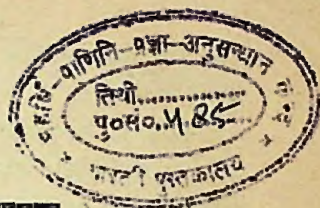 महर्षि-पाणिनि-प्रज्ञा-अनुसन्धान
तिथी..............
पु०सं०.4.85......
भारती पुस्तकालय